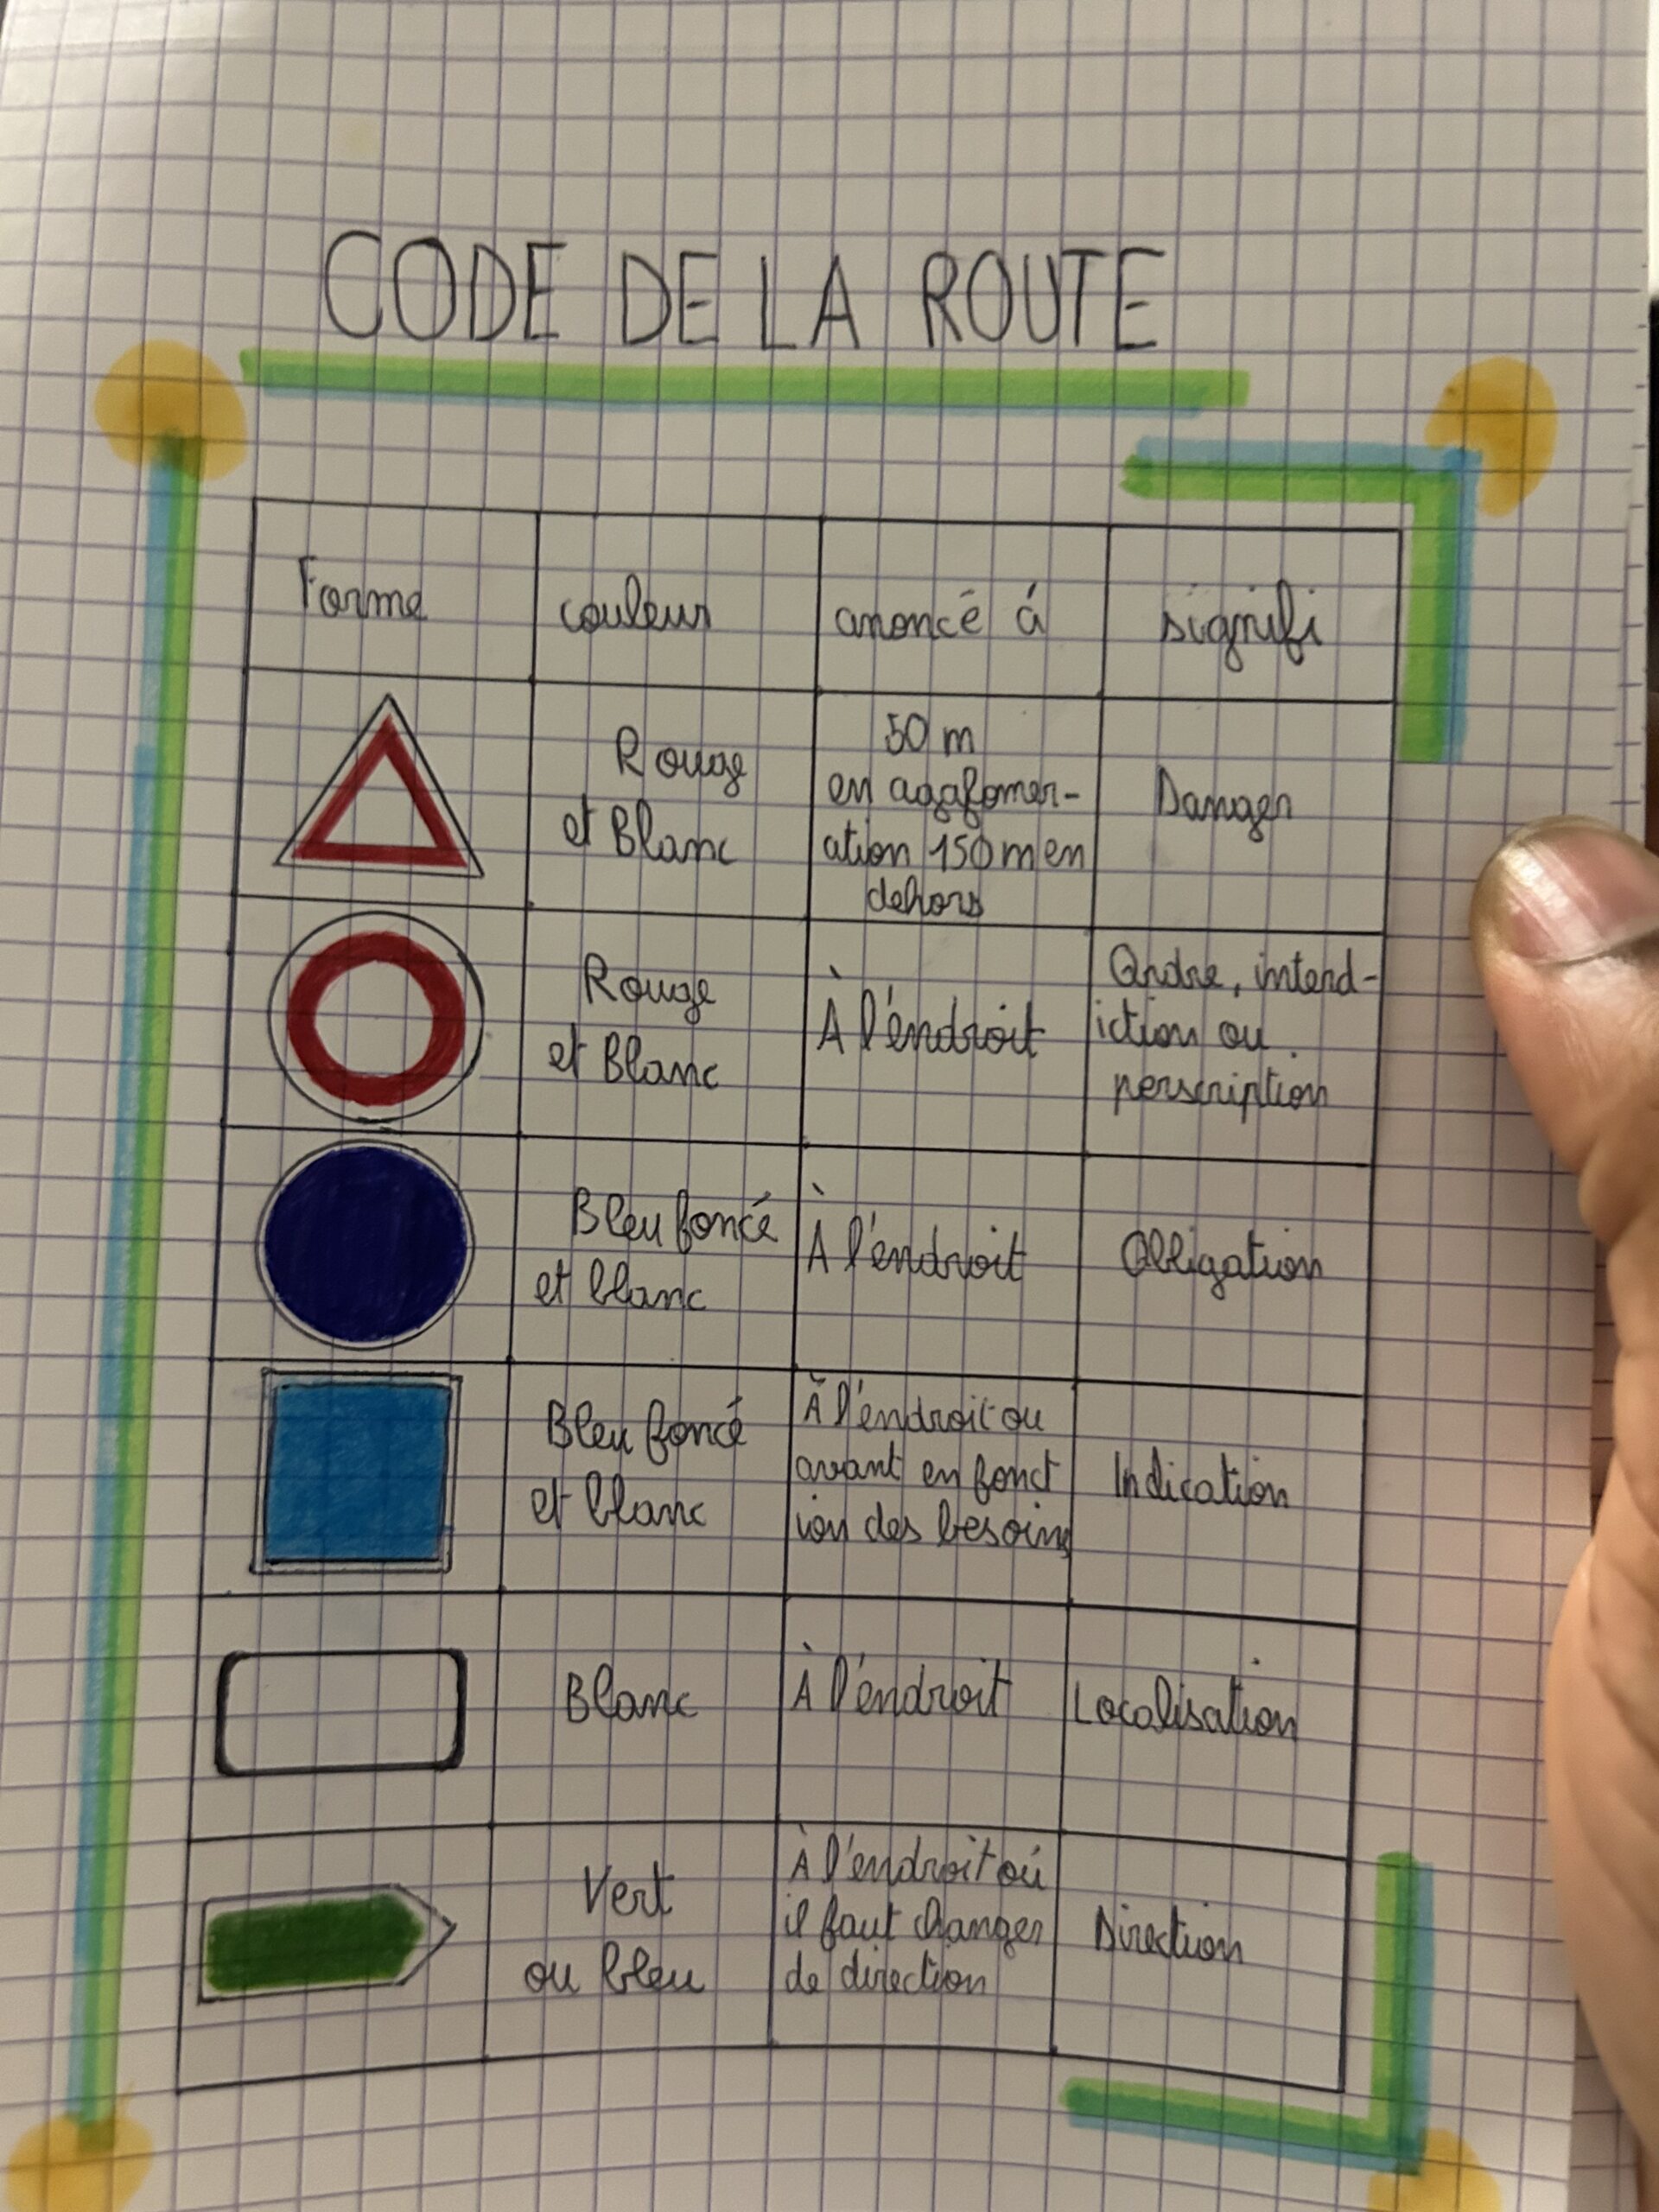 CODE DE LA ROUTE
Forme
couleur
anoncé á
signifi
Rouge
et Blanc
50 m
en aggfomer-
ation 150 m en
dehors
Danger
Rouge
et Blanc
À l'éndroit
Ordre, interd-
iction ou
perscription
Bleu foncé
et blanc
À l'éndroit
Obligation
Bleu foncé
et blanc
À l'éndroit ou
avant en fonct
ion des besoins
Indication
Blanc
À l'éndroit
Localisation
Vert
ou bleu
À l'éndroit oú
il faut changer
de direction
Direction